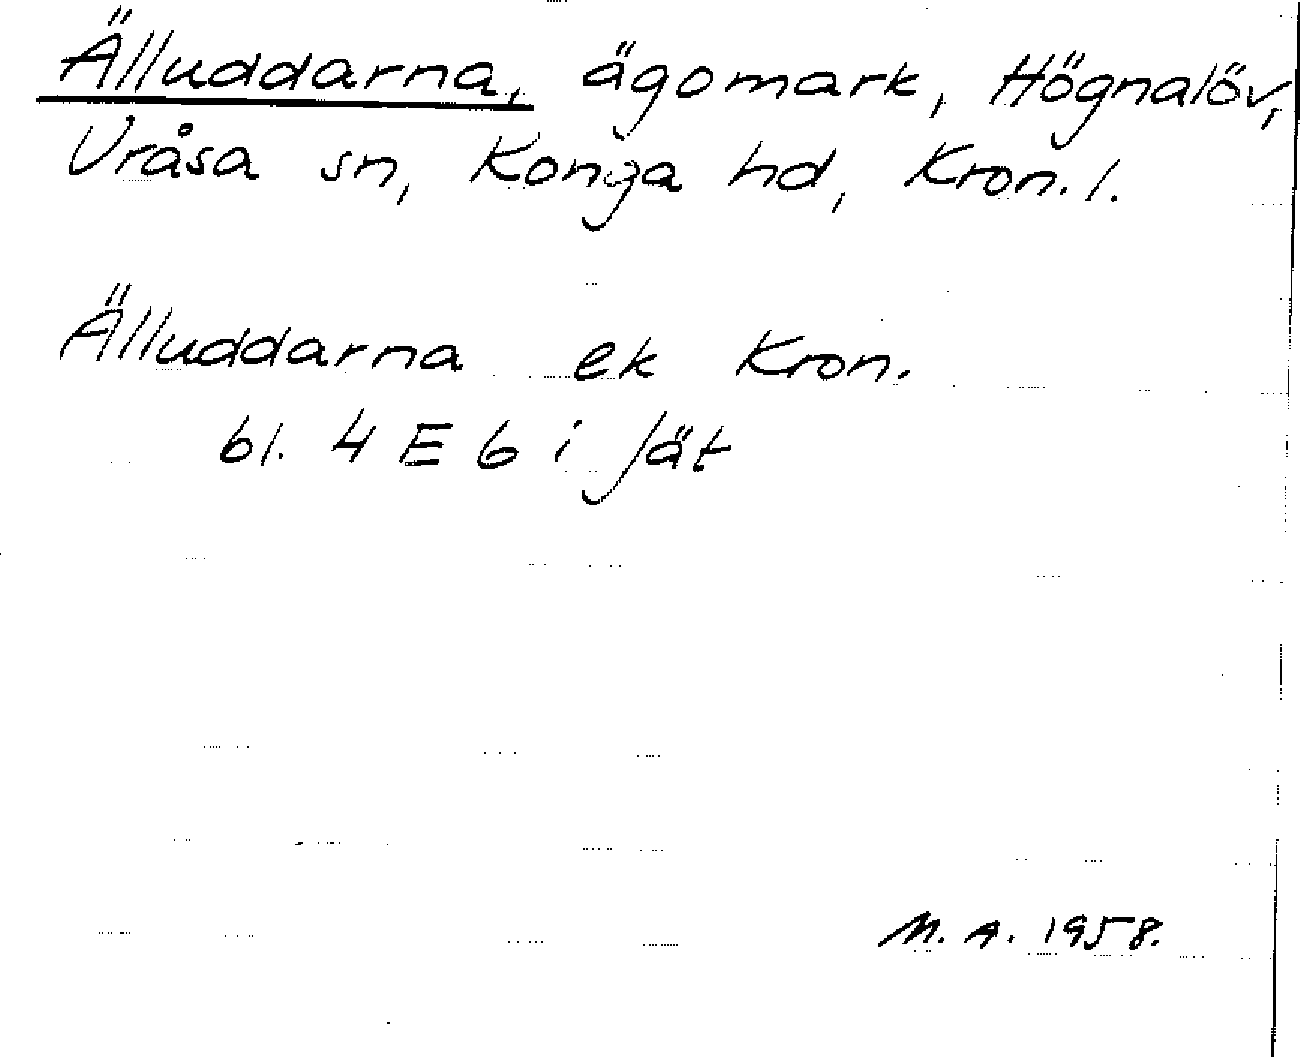 Älluddarna, ägomark, Högnalöv,
Uråsa sn, Konga hd, Kron. l.
Älluddarna ek Kron.
bl. 4 E 6 i Jät
M. A. 1958.